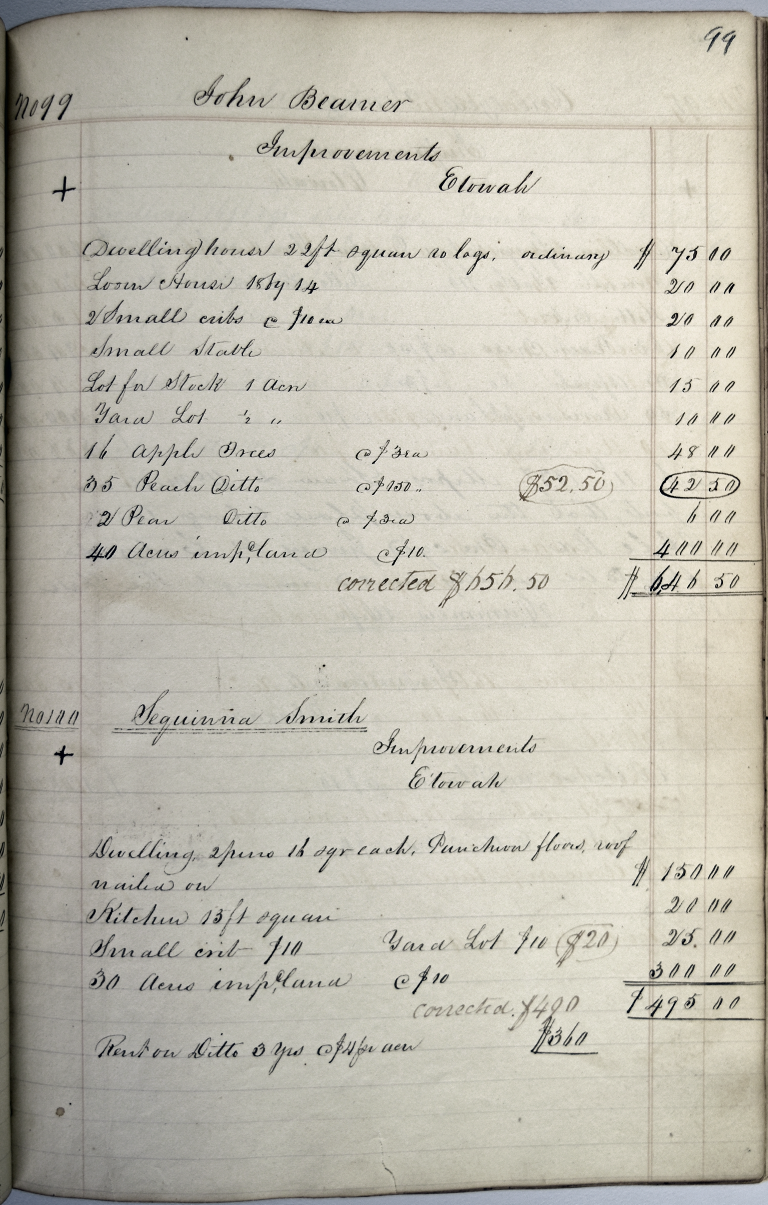 99
No 99 John Beamer
Improvements
+ Etowah
Dwelling house 22ft square 10 logs, ordinary $ 75 00
Loom House 18 by 14 20 00
2 Small cribs @ $10 ea 20 00
Small Stable 10 00
Lot for Stock 1 Acre 15 00
Yard Lot ½ " 10 00
16 Apple Trees @ $3 ea 48 00
35 Peach Ditto @ $1 50 " ($52.50) 42 50
2 Pear Ditto @ $3 ea 6 00
40 Acres imp.d land @ $10. 400 00
corrected $656.50 $ 646 50
No 100 Sequinna Smith
+ Improvements
Etowah
Dwelling, 2 pens 16 sqr each, Puncheon floors, roof
nailed on $ 150 00
Kitchen 15ft square 20 00
Small crib $10 Yard Lot $10 ($20) 25.00
30 Acres imp.d land @ $10 300 00
corrected. $490 $ 495 00
Rent on Ditto 3 yrs @ $4 pr acre $360